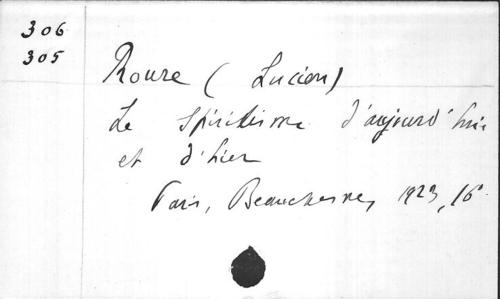 306
305
Roure (Lucien)
Le Spiritisme d'aujourd'hui
et d'hier
Paris, Beauchesne, 1923, 16°